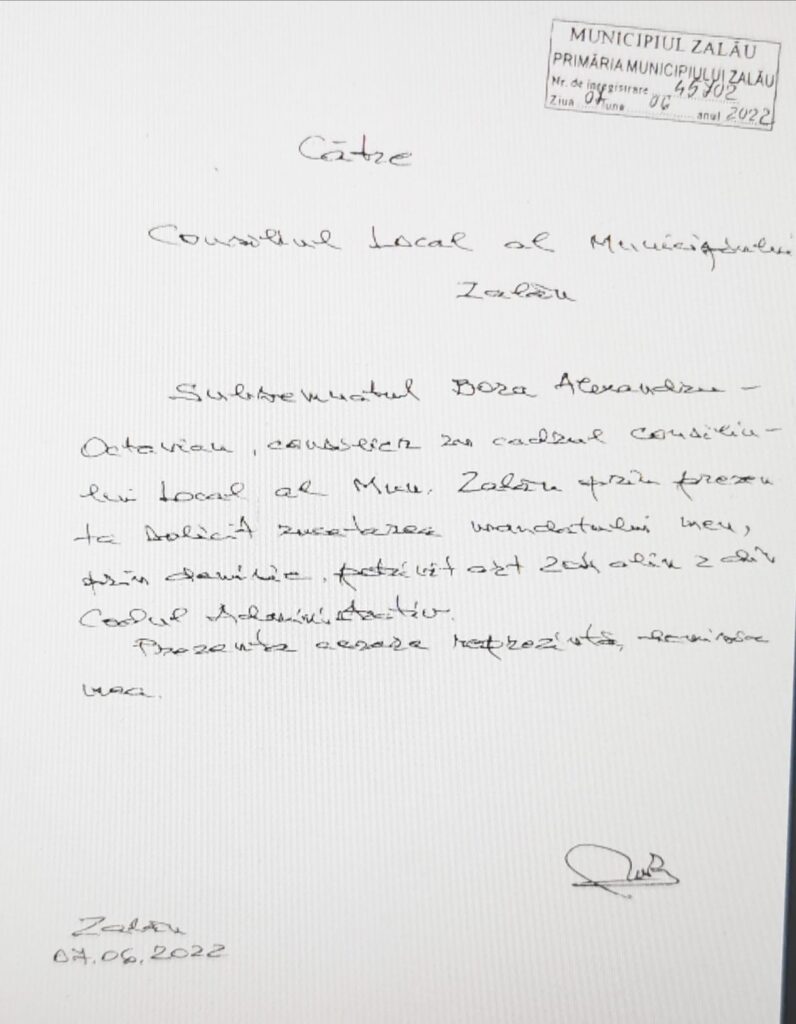 MUNICIPIUL ZALĂU
PRIMĂRIA MUNICIPIULUI ZALĂU
Nr. de înregistrare 45702
Ziua 07 luna 06 anul 2022
Către
Consiliul Local al Municipiului
Zalău
Subsemnatul Boza Alexandru-
Octavian, consilier în cadrul consiliu-
lui Local al Mun. Zalău prin prezen
ta solicit încetarea mandatului meu,
prin demisie, potrivit art 204 alin 2 din
Codul Administrativ.
Prezenta cerere reprezintă, demisia
mea.
Zalău
07.06.2022